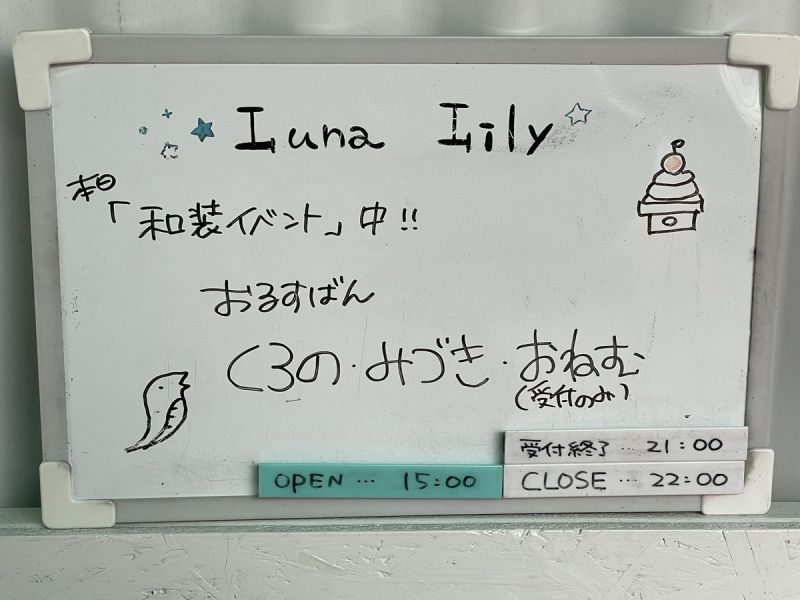 Luna Lily
本日
「和装イベント」中!!
おるすばん
くろの・みづき・おねむ
(受付のみ)
受付終了… 21:00
OPEN… 15:00
CLOSE… 22:00